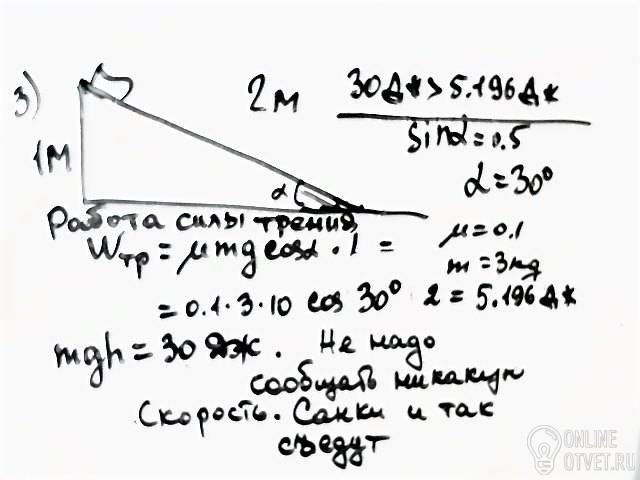 3)
1м
2 м
30Дж > 5.196Дж
sinα = 0.5
α = 30°
α
Работа силы трения
Wтр = μmg cosα · l =
μ = 0.1
m = 3kg
= 0.1 · 3 · 10 cos 30° 2 = 5.196Дж
mgh = 30 Дж. Не надо
сообщать никакую
Скорость. Санки и так
съедут
ONLINE
OTVET.RU